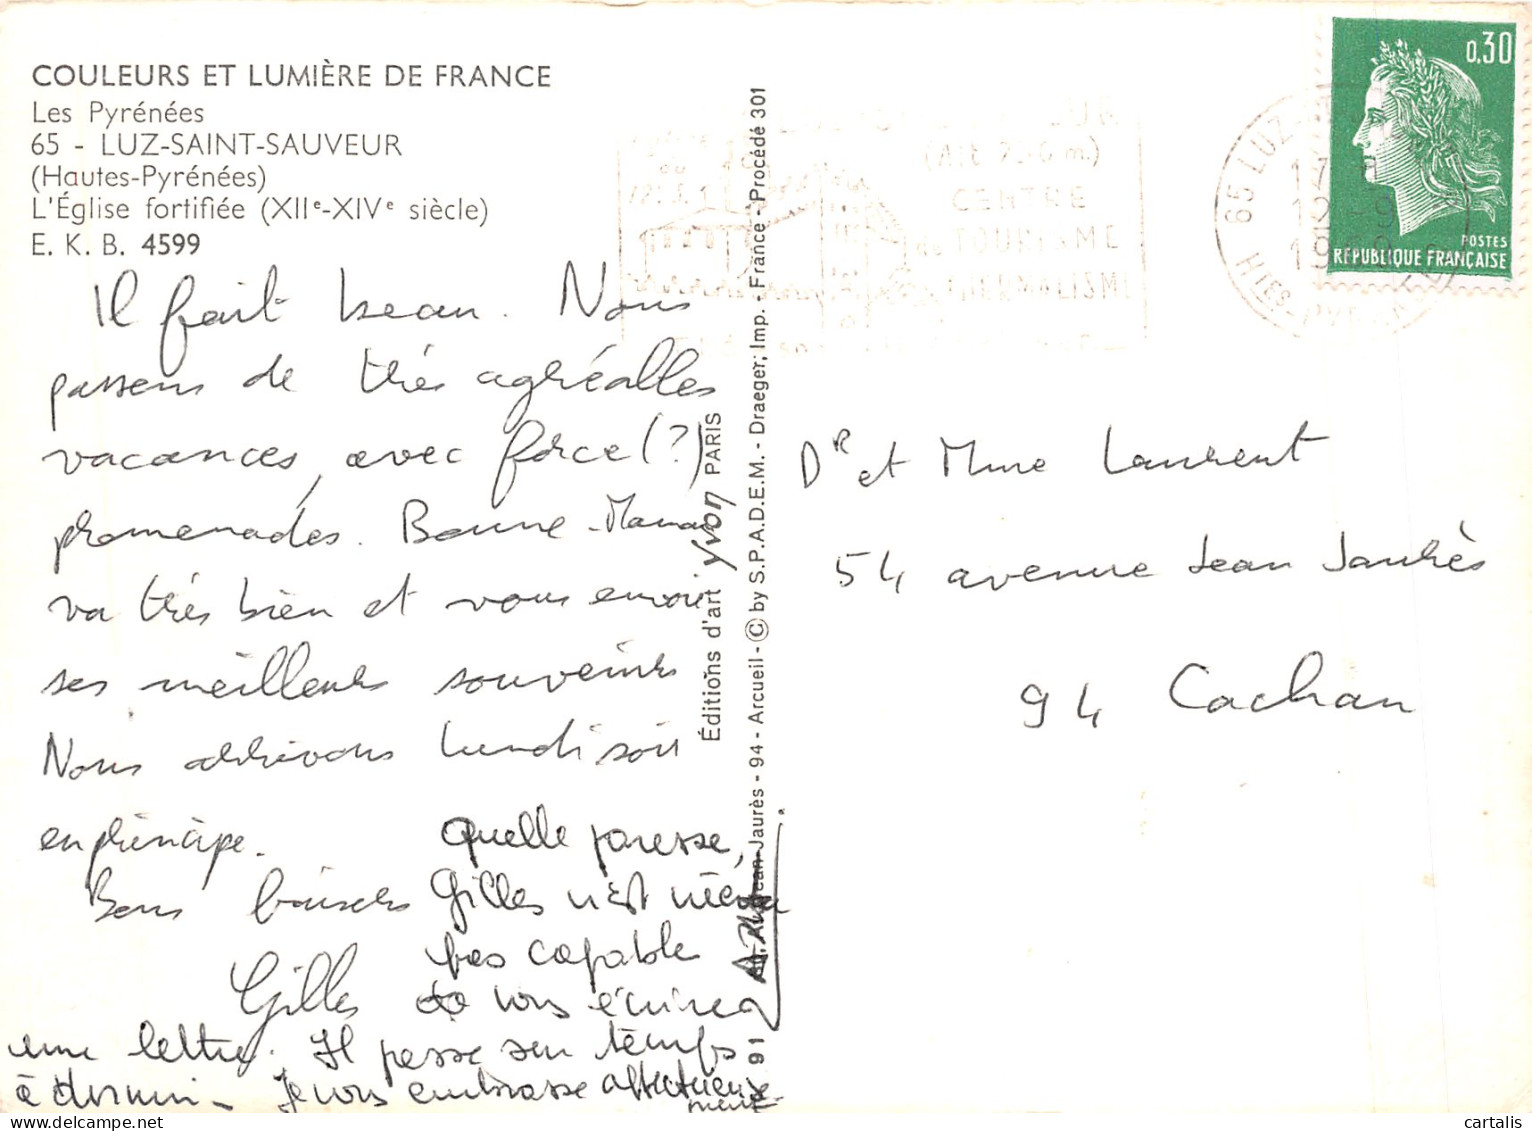 COULEURS ET LUMIÈRE DE FRANCE
Les Pyrénées
65 - LUZ-SAINT-SAUVEUR
(Hautes-Pyrénées)
L'Église fortifiée (XIIe-XIVe siècle)
E. K. B. 4599
Il fait beau. Nous
passons de très agréables
vacances, avec force (?)
promenades. Bonne-Maman
va très bien et vous envoie
ses meilleurs souvenirs
Nous arrivons lundi soir
en principe.
Bons baisers
Gilles
Quelle paresse,
Gilles n'est même
pas capable
de vous écrire
une lettre. Il passe son temps
à dormir - Je vous embrasse affectueuse
ment
Éditions d'art Yvon PARIS
91 Jean-Jaurès - 94 - Arcueil - © by S.P.A.D.E.M. - Draeger, Imp. - France - Procédé 301
(Alt. m.)
CENTRE
de TOURISME
THERMALISME
65 LUZ
12-9
1969
HTES-PYRÉNÉES
0,30
POSTES
RÉPUBLIQUE FRANÇAISE
Dr et Mme Laurent
54 avenue Jean Jaurès
94 Cachan
cartalis